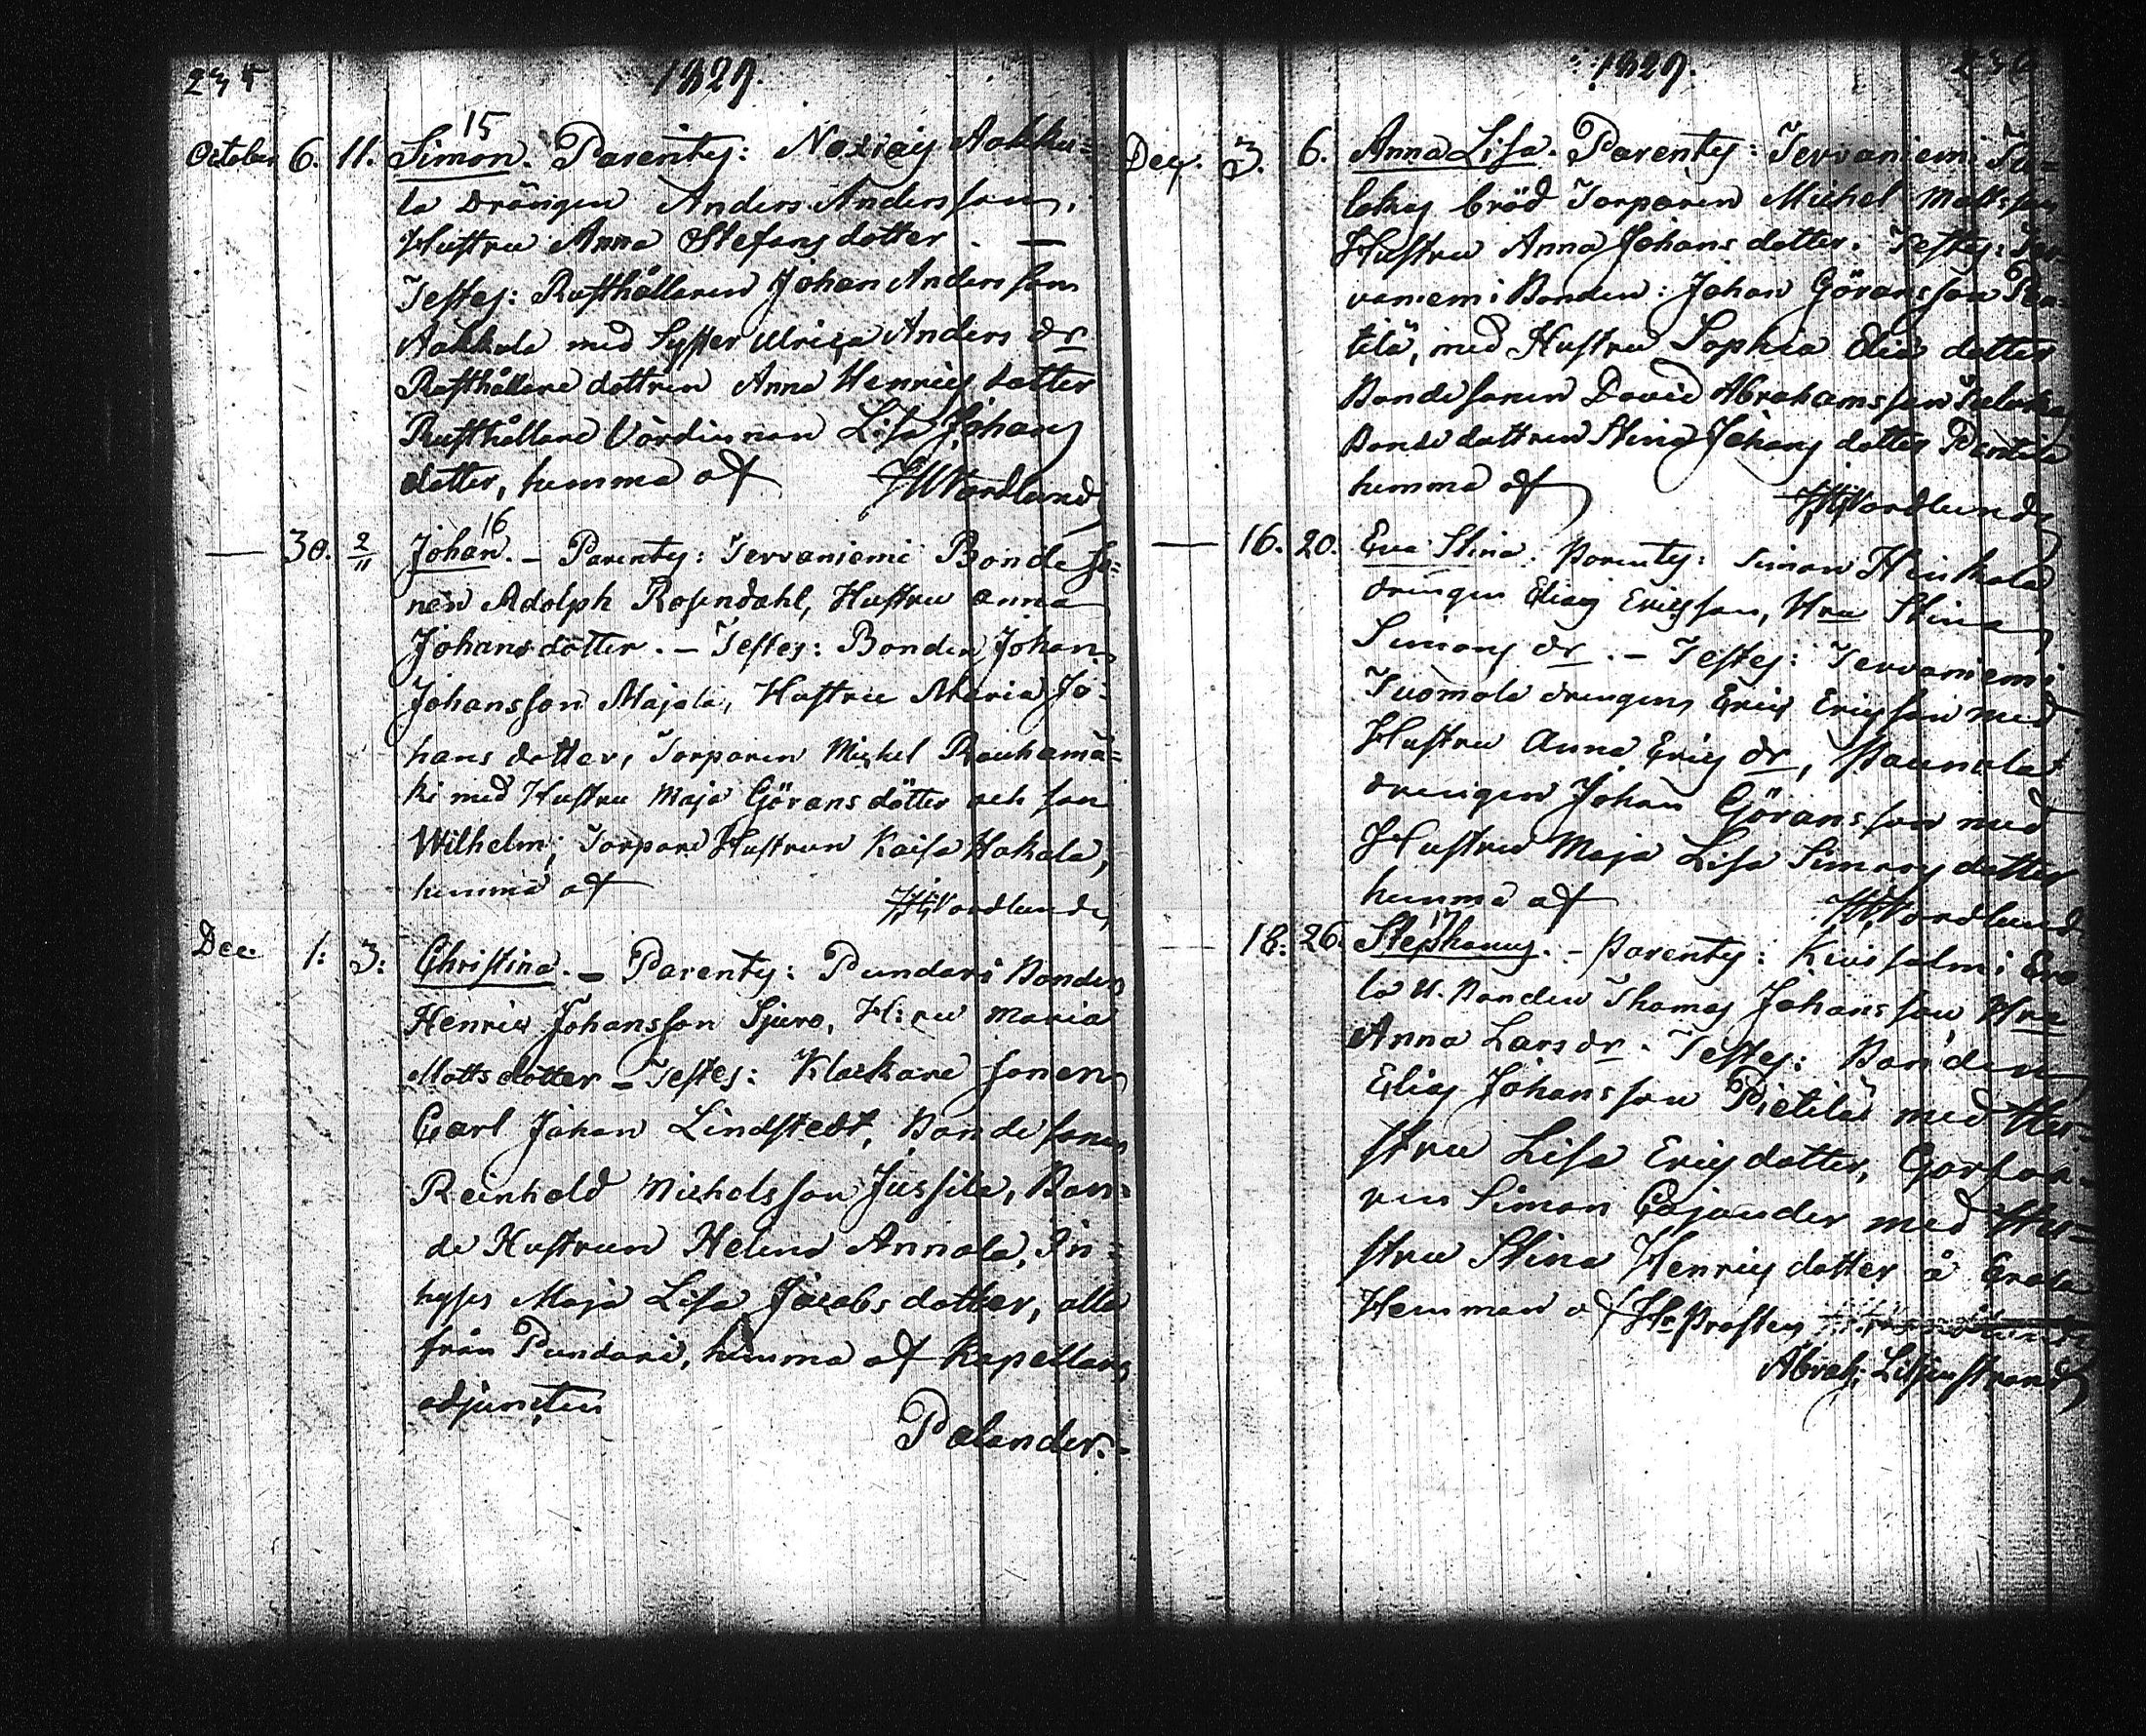 1829.
October 6. 11. Simon. 15 Parentes: Aakku=
la Drängen Anders Andersson,
Hustru Anna Stefansdotter. —
Testes: Rusthållaren Johan Andersson
Aakkula med Syster Ulrica Anders dr
Rusthållare dottren Anna Henrics dotter
Rusthållare Värdinnan Lisa Johans
dotter, hemma af Nordlund
— 30. 2/11 Johan. 16 — Parentes: Tervaniemi Bonde so=
nen Adolph Rosendahl, Hustru Anna
Johansdotter. — Testes: Bonden Johan
Johansson Majala, Hustru Maria Jo=
hans dotter, Torparen Michel Rauhamä=
ki med Hustru Maja Görans dotter och son
Wilhelm; Torpare Hustrun Kaisa Hakala,
hemma af Nordlund
Dec 1: 3: Christina. — Parentes: Pundari Bonden
Henric Johansson Sjuro, H:ru Maria
Mattsdotter — Testes: Klockare sonen
Carl Johan Lindstedt, Bonde sonen
Reinhold Michelsson Jussila, Bon=
de Hustrun Helena Annala, In=
hyses Maja Lisa Jacobs dotter, alla
från Pundari, hemma af Kapellans
adjuncten
Polander. —
1829.
Dec. 3. 6. Anna Lisa. Parentes: Tervaniemi
bröd Torparen Michel Mattsson
Hustru Anna Johans dotter. Testes: Ter=
vaniemi Bonden: Johan Göransson
med Hustru Sophia Elia dotter
Bondesonen David Abrahamsson
Bonde dottren Stina Johans dotter
hemma af Nordlund
— 16. 20. Eva Stina. Parentes: Simon Heikkala
drengen Elias Ericsson, Hru Stina
Simons dr. — Testes: Tervaniemi
Tuomola drengen Eric Ericsson med
Hustru Anna Erics dr, Paunola
drengen Johan Göransson med
Hustru Maja Lisa Simons dotter
hemma af Nordlund
— 18. 26. Stephanus. 17 — Parentes: Kivisalmi
la U. Bonden Thomas Johansson Hru
Anna Lars dr. Testes: Bonden
Elias Johansson Pietilä med Hu=
stru Lisa Erics dotter, Garfva=
ren Simon Cajander med Hu=
stru Stina Henrics dotter å
Hemman af Hr Prosten
Abrah: Lilljenstrand